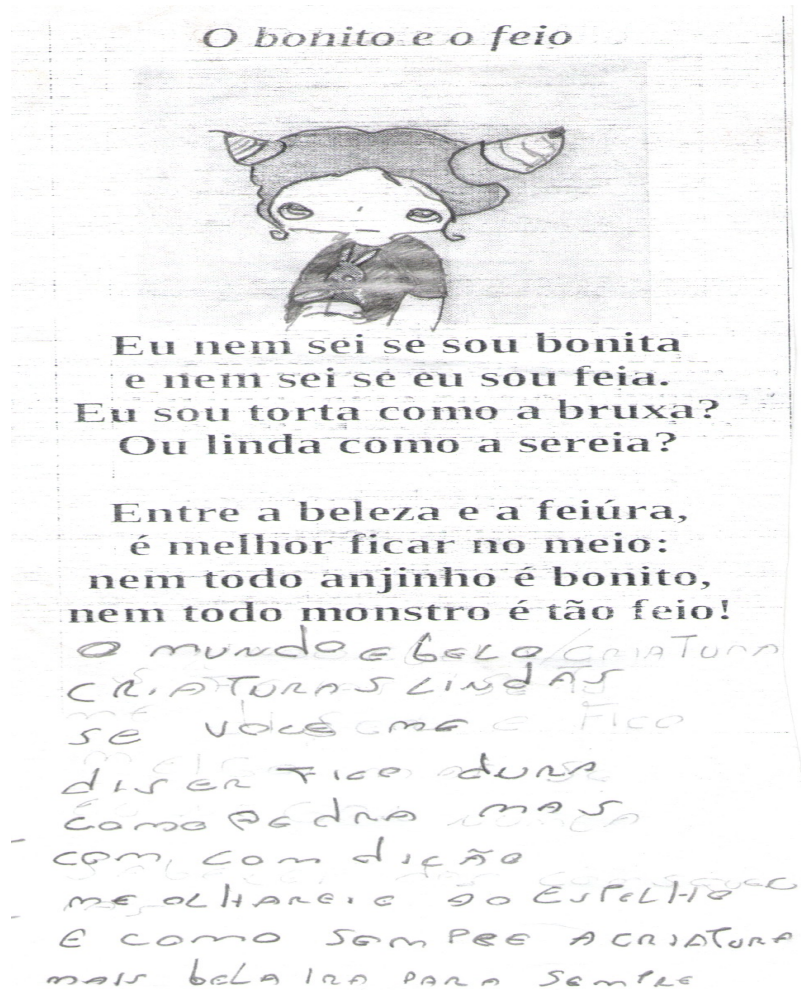 O bonito e o feio
Eu nem sei se sou bonita
e nem sei se eu sou feia.
Eu sou torta como a bruxa?
Ou linda como a sereia?
Entre a beleza e a feiúra,
é melhor ficar no meio:
nem todo anjinho é bonito,
nem todo monstro é tão feio!
O MUNDO E BELO / CRIATURA
CRIATURAS LINDAS
SE VOCE ME FICO
DISER FICO DURA
COMO PEDRA MAS
COM, COM DICÃO
ME OLHAREI E AO ESPELHO
E COMO SEMPRE A CRIATURA
MAIS BELA IRA PARA SEMPRE